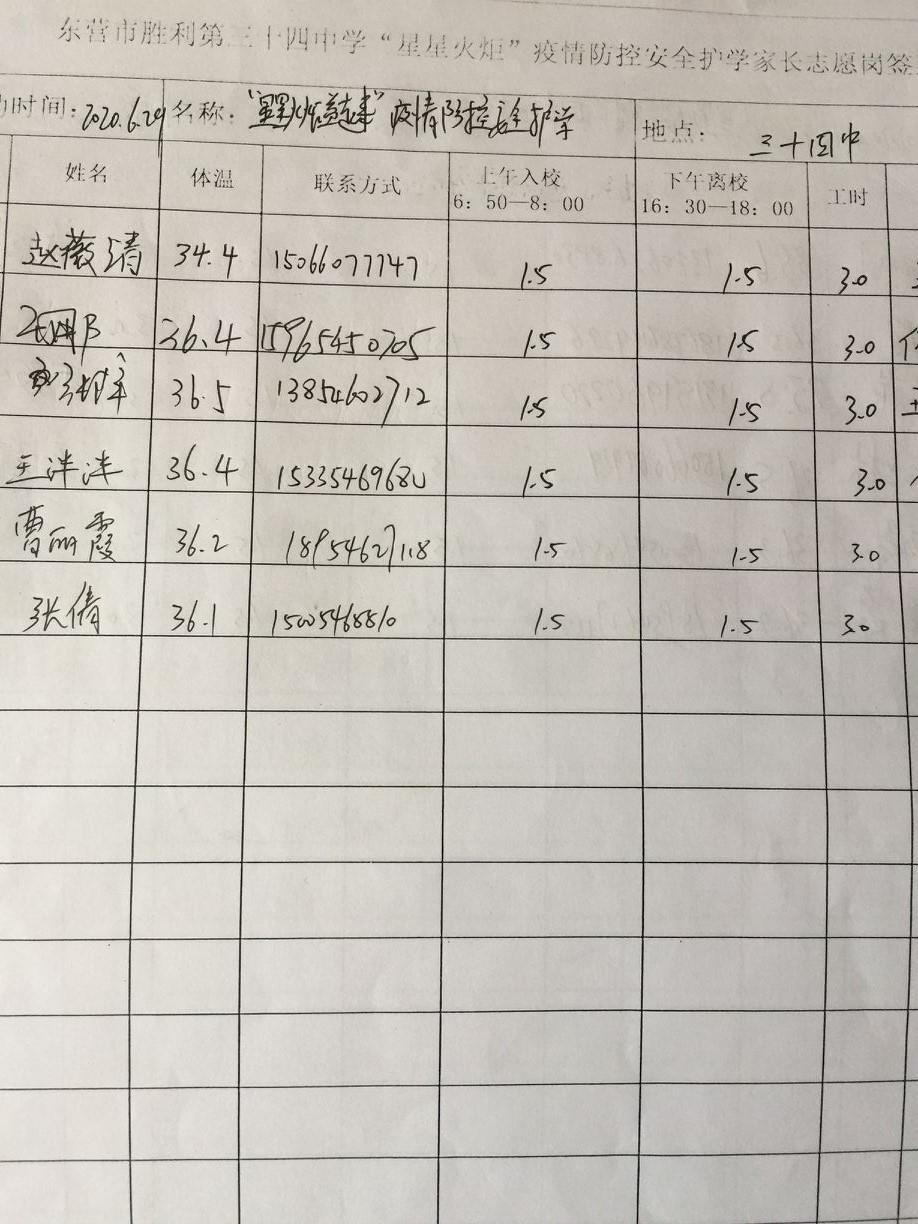 东营市胜利第三十四中学“星星火炬”疫情防控安全护学家长志愿岗签
时间：2020.6.29 名称： 疫情防控安全护学 地点： 三十四中
姓名 体温 联系方式 上午入校 6：50—8：00 下午离校 16：30—18：00 工时
赵薇清 34.4 15066077747 1.5 1.5 3.0
36.4 15965450705 1.5 1.5 3.0
36.5 13854602712 1.5 1.5 3.0
王泮泮 36.4 15335469680 1.5 1.5 3.0
曹丽霞 36.2 18954627118 1.5 1.5 3.0
张倩 36.1 15005468810 1.5 1.5 3.0